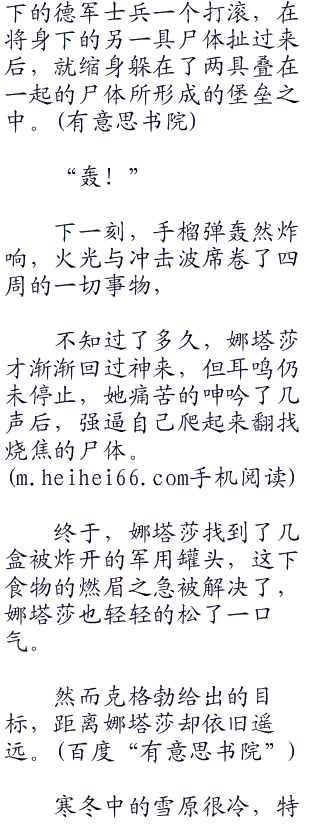 下的德军士兵一个打滚，在
将身下的另一具尸体扯过来
后，就缩身躲在了两具叠在
一起的尸体所形成的堡垒之
中。(有意思书院)
“轰！”
下一刻，手榴弹轰然炸
响，火光与冲击波席卷了四
周的一切事物，
不知过了多久，娜塔莎
才渐渐回过神来，但耳鸣仍
未停止，她痛苦的呻吟了几
声后，强逼自己爬起来翻找
烧焦的尸体。
(m.heihei66.com手机阅读)
终于，娜塔莎找到了几
盒被炸开的军用罐头，这下
食物的燃眉之急被解决了，
娜塔莎也轻轻的松了一口
气。
然而克格勃给出的目
标，距离娜塔莎却依旧遥
远。(百度“有意思书院”)
寒冬中的雪原很冷，特